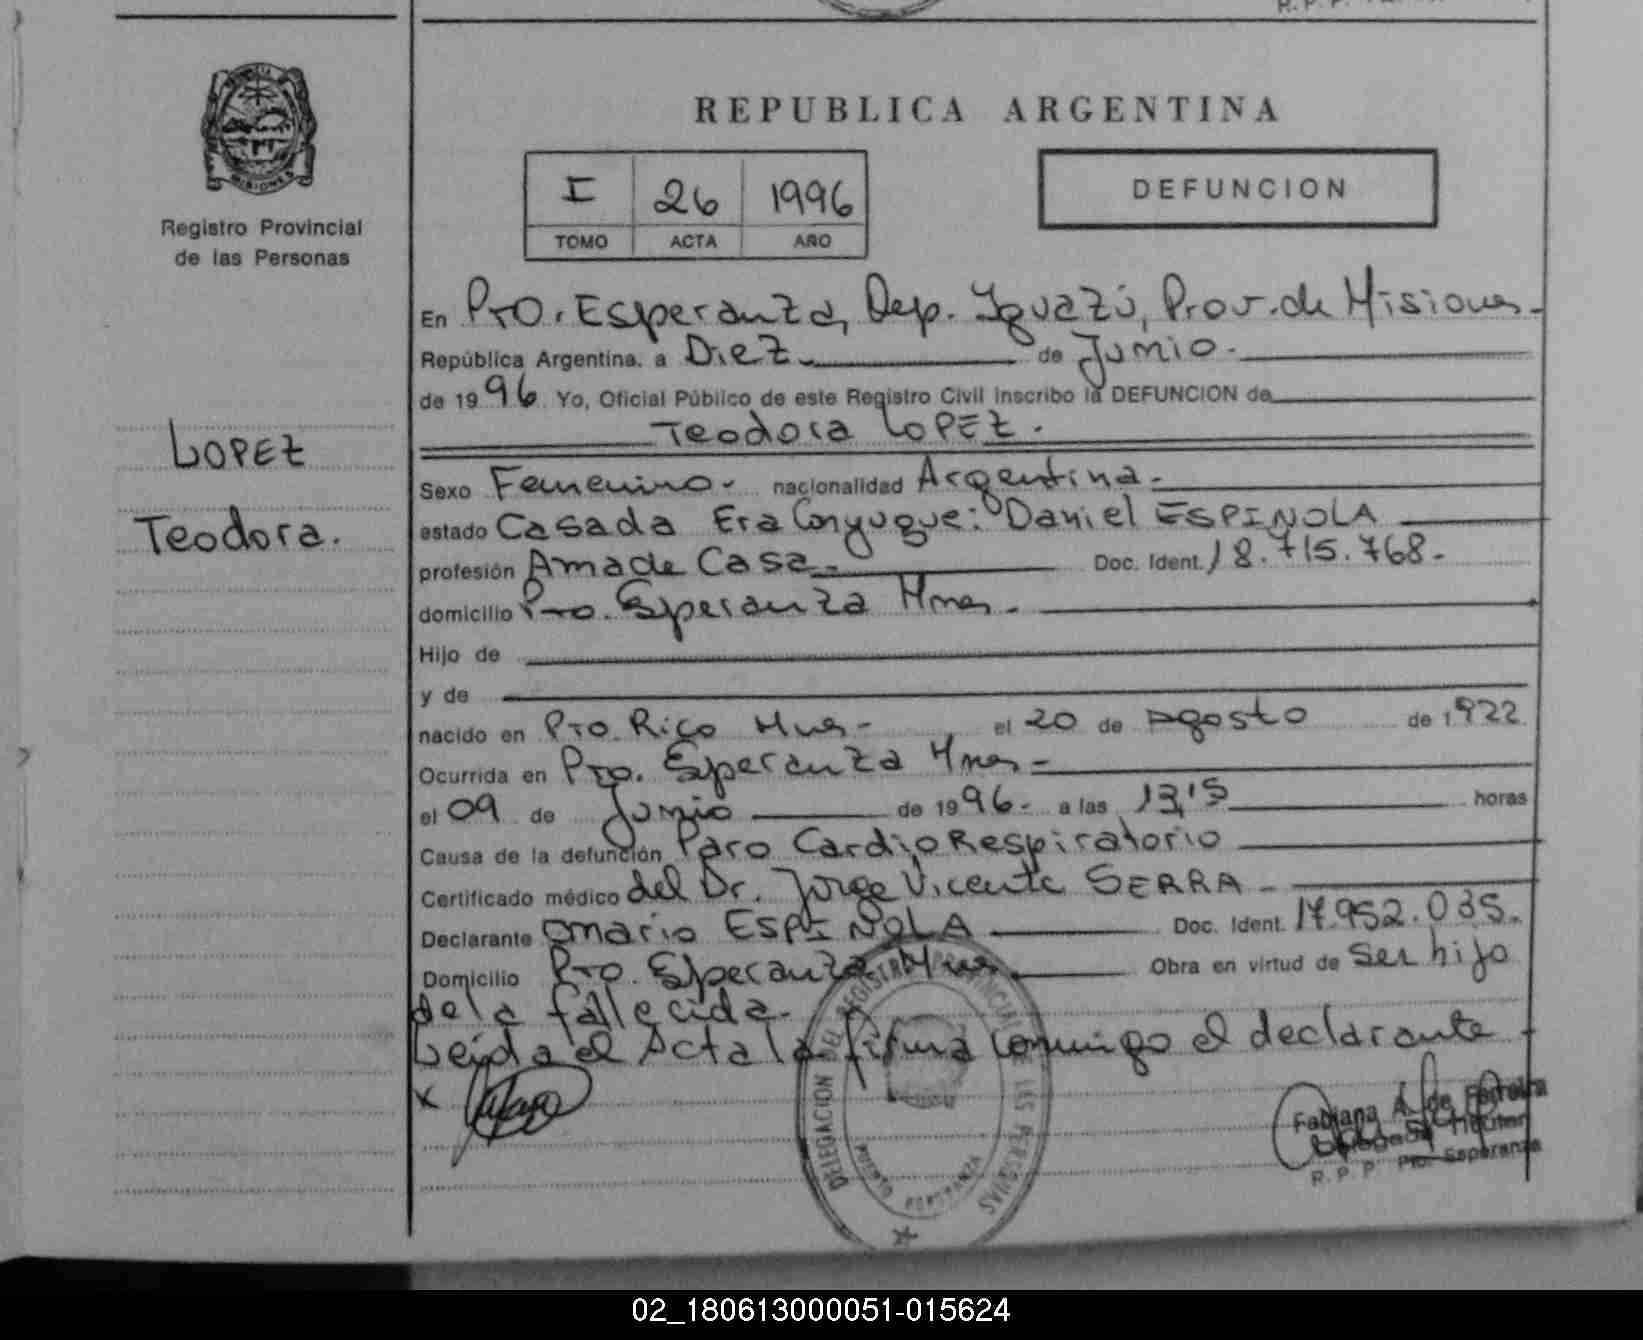 R. P. P.
PROVINCIA DE
MISIONES
Registro Provincial
de las Personas
LOPEZ
Teodora.
REPUBLICA ARGENTINA
I 26 1996
TOMO ACTA AÑO
DEFUNCION
En Pto. Esperanza, Dep. Iguazú, Prov. de Misiones-
República Argentina. a Diez. de Junio.-
de 1996 Yo, Oficial Público de este Registro Civil Inscribo la DEFUNCION de
Teodora LOPEZ.
Sexo Femenino- nacionalidad Argentina.-
estado Casada Era Conyugue: Daniel ESPINOLA
profesión Ama de Casa.- Doc. Ident. 18.715.768-
domicilio Pto. Esperanza Mnes.
Hijo de
y de
nacido en Pto. Rico Mnes- el 20 de Agosto de 1922
Ocurrida en Pto. Esperanza Mnes-
el 09 de Junio de 1996- a las 13,15 horas
Causa de la defunción Paro Cardio Respiratorio
Certificado médico del Dr. Jorge Vicente SERRA-
Declarante Omario ESPINOLA Doc. Ident. 17.952.035.
Domicilio Pto. Esperanza Mnes Obra en virtud de Ser hijo
de la fallecida.
Leida el Acta la firma conmigo el declarante
x
DELEGACION DEL REGISTRO PROVINCIAL DE LAS PERSONAS
PUERTO ESPERANZA
Fabiana A. de Ferreira
Delegada Titular
R. P. P. Pto. Esperanza
02_180613000051-015624